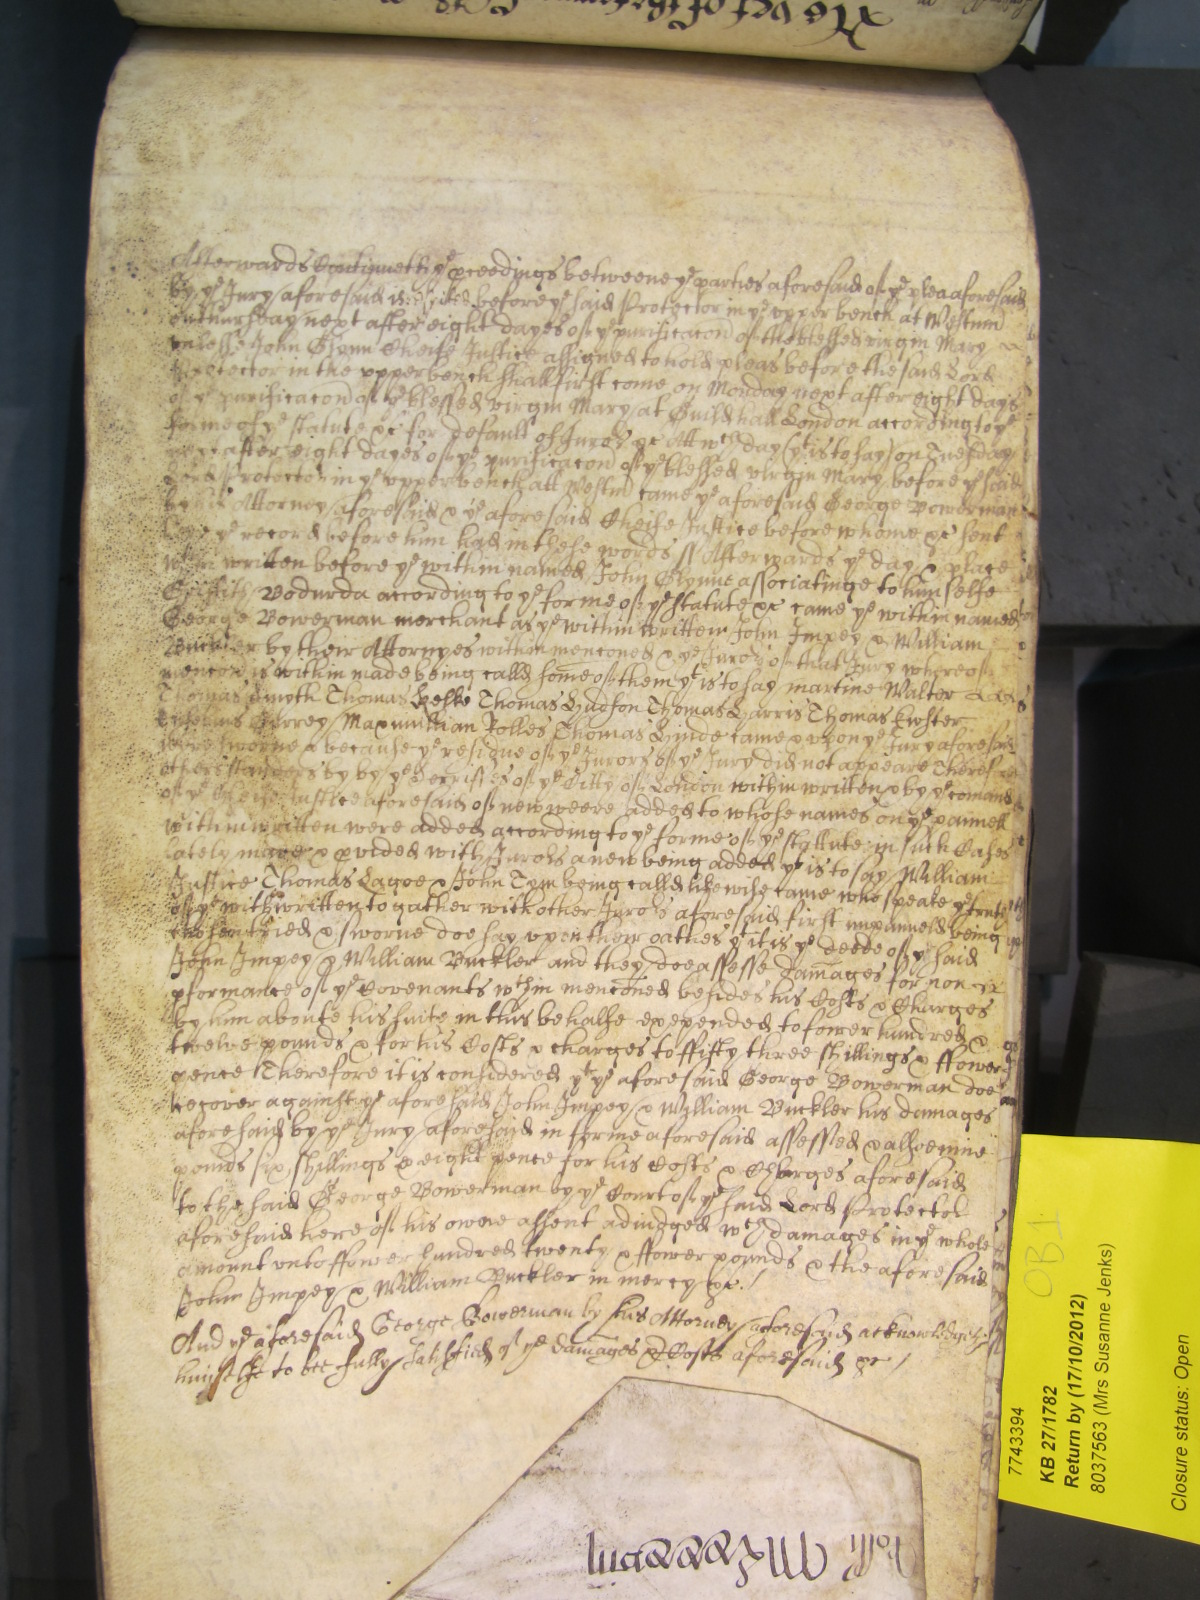 Afterwards Continueth ye pceedings betweene ye parties aforesaid of ye plea aforesaid
by ye Jury aforesaid is respited before ye said Protector in ye upper bench at Westmr
untill thursday next after eight dayes of ye purificacon of the blessed virgin Mary
unlesse John Glynn Cheife Justice assigned to hold pleas before the said Lord
Protector in the upper bench shall first come on Monday next after eight days
of ye purificacon of ye blessed virgin Mary at Guildhall London according to ye
forme of ye statute &c for default of Jurors &c Att wch day (yt is to say) on Tuesday
next after eight dayes of ye purificacon of ye blessed virgin Mary before ye said
Lord Protector in ye upper bench att Westmr came ye aforesaid George Bowerman
by his Attorney aforesaid & ye aforesaid Cheife Justice before whome &c sent
here ye record before him had in these words ss Afterwards ye day & place
within written before ye within named John Glynne associatinge to himselfe
Griffith Bodurda according to ye forme of ye statute &c came ye within named
George Bowerman merchant as ye within written John Impey & William
Buckler by their Attornyes within menconed & ye Jurors of that Jury whereof
mencon is within made being calld some of them yt is to say martine Walter
Thomas Smyth Thomas Thomas Hudson Thomas Harris Thomas
Maxmillian Rolles Thomas Hinde came & upon ye Jury aforesaid
were sworne & because ye residue of ye Jurors of ye Jury did not appeare Therefore
others standers by by ye Sherrifes of ye Citty of London within written & by ye comand
of ye Cheife Justice aforesaid of new weere added to whose names on ye pannell
within written were added according to ye forme of ye stattute in such Cases
lately made & pvided with Jurors anew being added yt is to say William
Justice Thomas Lagoe & John Tym being calld likewise came who speake ye truth
of ye with written togather with other Jurors aforesaid first impaneld being
chosen tried & sworne doe say upon their oathes yt it is ye deede of ye said
John Impey & William Buckler and they doe assesse damages for non
pformance of ye Covenants wthin menconed besides his Costs & Charges
by him aboute his suite in this behalfe expended to fower hundred &
twelve pounds & for his Costs & charges to ffifty three shillings & ffower
pence Therefore it is considered yt ye aforesaid George Bowerman doe
recover against ye aforesaid John Impey & William Buckler his damages
aforesaid by ye Jury aforesaid in forme aforesaid assessed & alsoe nine
pounds six shillings & eight pence for his Costs & Charges aforesaid
to the said George Bowerman by ye Court of ye said Lord Protector
aforesaid here of his owne assent adiudged wch damages in ye whole
amount unto ffower hundred twenty & ffower pounds & the aforesaid
John Impey & William Buckler in mercy &c./
And ye aforesaid George Bowerman by his Attorney aforesaid acknowledgeth
himselfe to bee fully satisfied of ye damages & Costs aforesaid &c /
7743394
KB 27/1782
Return by (17/10/2012)
8037563 (Mrs Susanne Jenks)
Closure status: Open
OB1